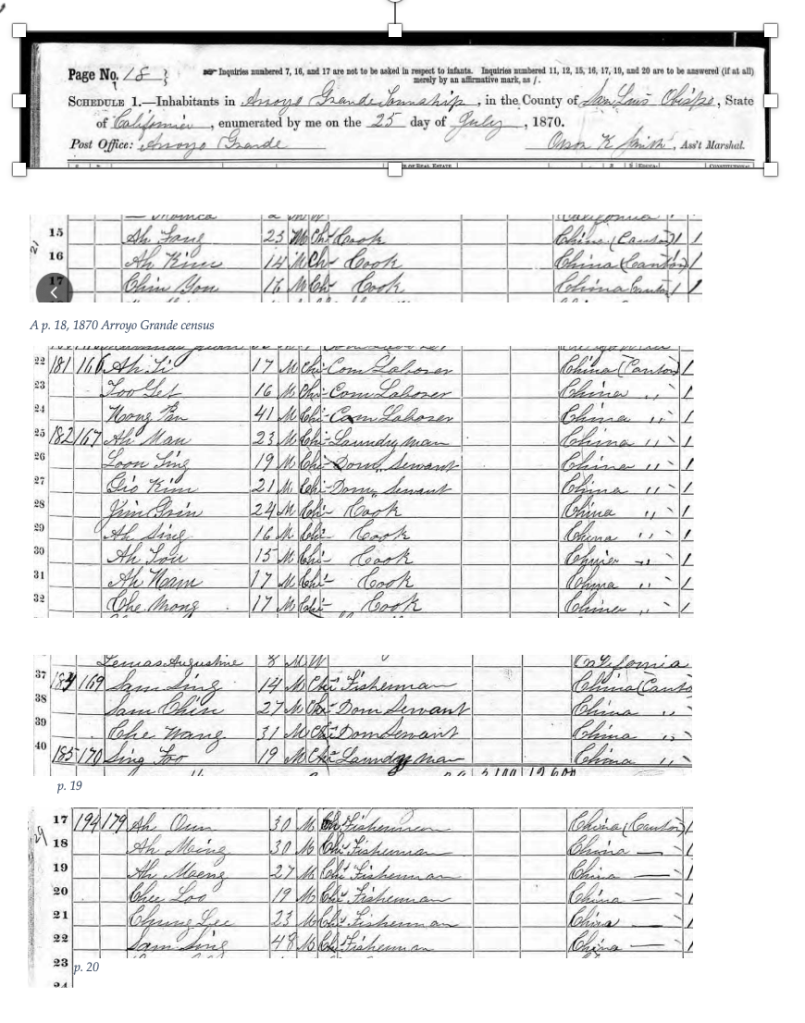 Page No. 18 } Inquiries numbered 7, 16, and 17 are not to be asked in respect to infants. Inquiries numbered 11, 12, 15, 16, 17, 19, and 20 are to be answered (if at all)
merely by an affirmative mark, as /.
SCHEDULE 1.—Inhabitants in Arroyo Grande Township, in the County of San Luis Obispo, State
of California, enumerated by me on the 25 day of July, 1870.
Post Office: Arroyo Grande Orson K Smith, Ass't Marshal.
15 Ah Fong 23 M Chi Cook China (Canton) 1 1
16 Ah Kim 14 M Chi Cook China (Canton) 1
17 Chin You 16 M Chi Cook China Canton 1 1
A p. 18, 1870 Arroyo Grande census
22 181 166 Ah Li 17 M Chi Com Laborer China (Canton) 1
23 16 M Chi Com Laborer China " 1
24 41 M Chi Com Laborer China " 1
25 182 167 Ah Man 23 M Chi Laundryman China " 1
26 Loon Sing 19 M Chi Dom Servant China " 1
27 Gio Kim 21 M Chi Dom Servant China " 1
28 Jim 24 M Chi Cook China " 1
29 Ah Sing 16 M Chi Cook China " 1
30 Ah 15 M Chi Cook China " 1
31 Ah Ham 17 M Chi Cook China " 1
32 Che Mong 17 M Chi Cook China " 1
Augustine 8 M W California
37 184 169 Sam Sing 14 M Chi Fisherman China (Canto
38 Sam Chin 27 M Chi Dom Servant China "
39 Che Wang 31 M Chi Dom Servant China "
40 185 170 Sing Foo 19 M Chi Laundryman China "
p. 19
17 194 179 Ah 30 M Chi Fisherman China (Canton) 1
18 Ah Ming 30 M Chi Fisherman China — 1
19 Ah Moeng 27 M Chi Fisherman China — 1
20 Chee Loo 19 M Chi Fisherman China — 1
21 Chung Lee 23 M Chi Fisherman China — 1
22 Sam Sing 48 M Chi Fisherman China — 1
23 p. 20
24